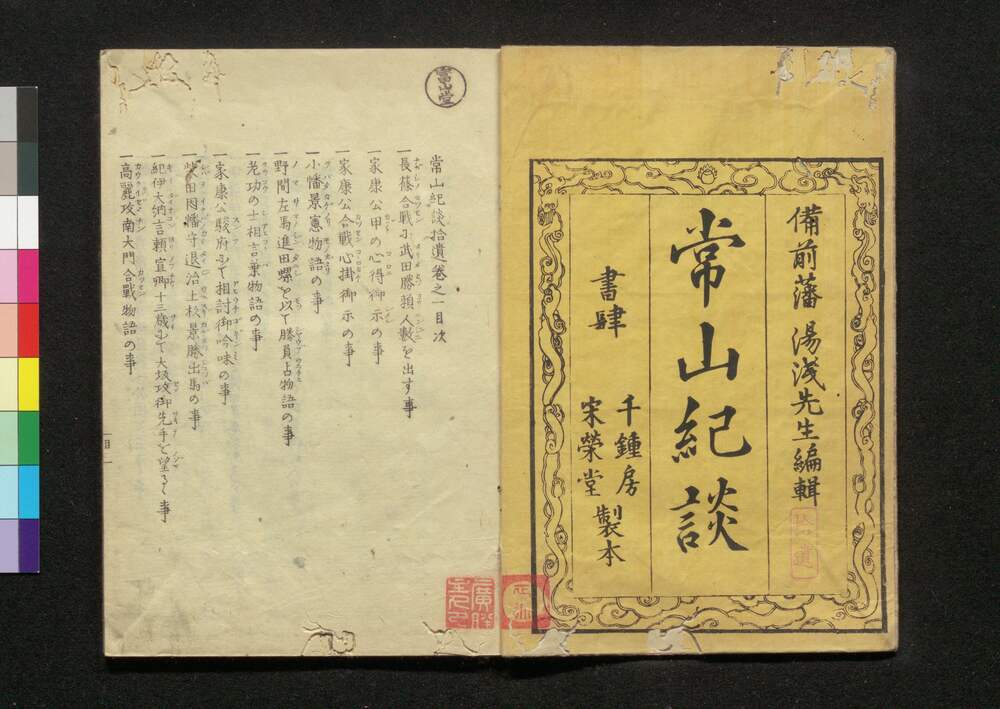 備前藩 湯浅先生編輯
常山紀談
書肆
千鍾房
宋榮堂
製本
常山堂
常山紀談拾遺巻之一目次
一長篠合戦に武田勝頼人数を出す事
一家康公甲の心得御示の事
一家康公合戦心掛御示の事
一小幡景憲物語の事
一野間左馬進田螺を以て勝負占物語の事
一老功の士相言葉物語の事
一家康公駿府にて相討御吟味の事
一柴田因幡守退治上杉景勝出馬の事
一紀伊大納言頼宣卿十三歳にて大坂攻御先手を望るゝ事
一高麗攻南大門合戰物語の事